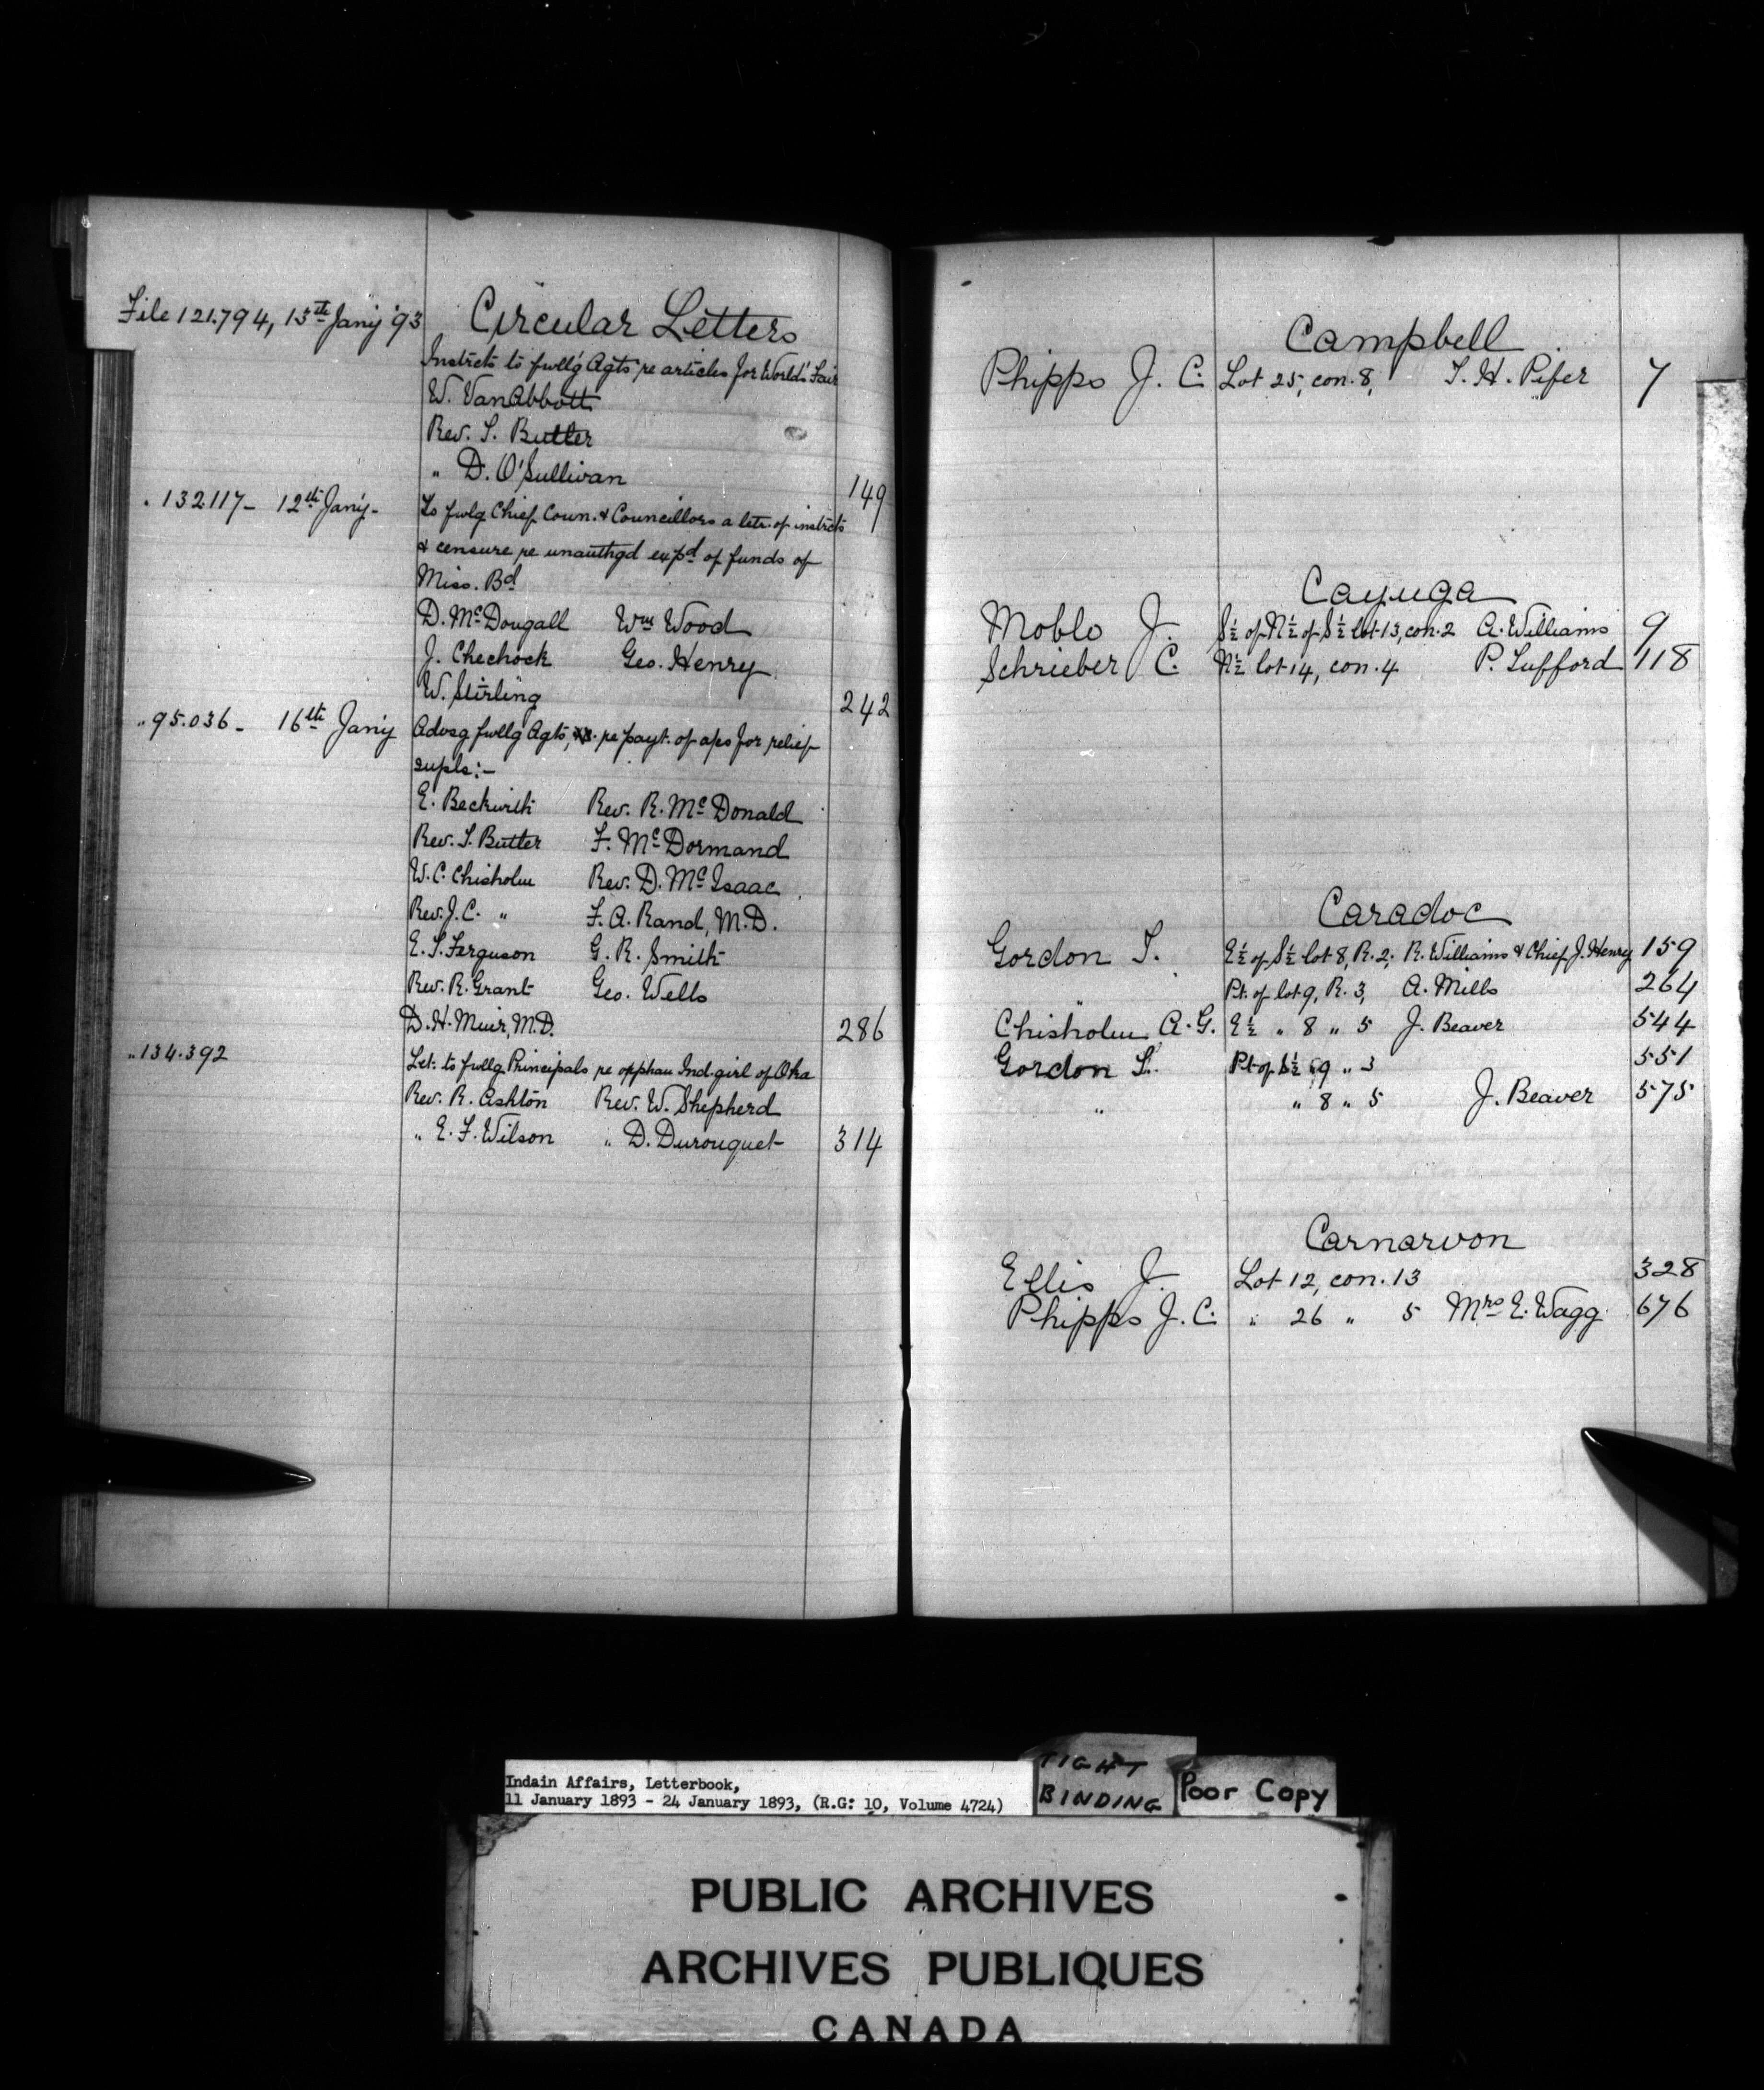 File 121.794, 13th Jan'y '93
Circular Letters
Instrcts to fwll'g Agts re articles for World's Fair
W. VanAbbott
Rev. T. Butler
" D. O'Sullivan 149
" 132117 - 12th Jan'y -
To fwlg Chief Coun. & Councillors a letr. of instrcts
& censure re unauthgd expd of funds of
Miss. Bd
D. McDougall Wm Wood
J. Chechock Geo. Henry
W. Stirling 242
" 95.036 - 16th Jan'y
Advsg fwllg Agts, re payt. of a/cs for relief
supls:-
E. Beckwith Rev. R. McDonald
Rev. T. Butler F. McDormand
W. C. Chisholm Rev. D. McIsaac
Rev. J. C. " F. A. Rand, M.D.
E. T. Ferguson G. R. Smith
Rev. R. Grant Geo. Wells
D. H. Muir, M.D. 286
" 134.392
Let. to fwllg Principals re orphan Ind. girl of Oka
Rev. R. Ashton Rev. W. Shepherd
" E. F. Wilson " D. Durouquet 314
Campbell
Phipps J. C. Lot 25, con. 8, T. H. Pifer 7
Cayuga
Moblo J. S½ of N½ of S½ lot 13, con. 2 A. Williams 9
Schrieber C. N½ lot 14, con. 4 P. Lufford 118
Caradoc
Gordon T. E½ of S½ lot 8, R. 2, R. Williams & Chief J. Henry 159
" Pt. of lot 9, R. 3, A. Mills 264
Chisholm A. G. E½ " 8 " 5 J. Beaver 544
Gordon T. Pt of S½ 9 " 3 551
" " 8 " 5 J. Beaver 575
Carnarvon
Ellis J. Lot 12, con. 13 328
Phipps J. C. " 26 " 5 Mrs E. Wagg 676
Indain Affairs, Letterbook,
11 January 1893 - 24 January 1893, (R.G: 10, Volume 4724)
TIGHT
BINDING
Poor Copy
PUBLIC ARCHIVES
ARCHIVES PUBLIQUES
CANADA